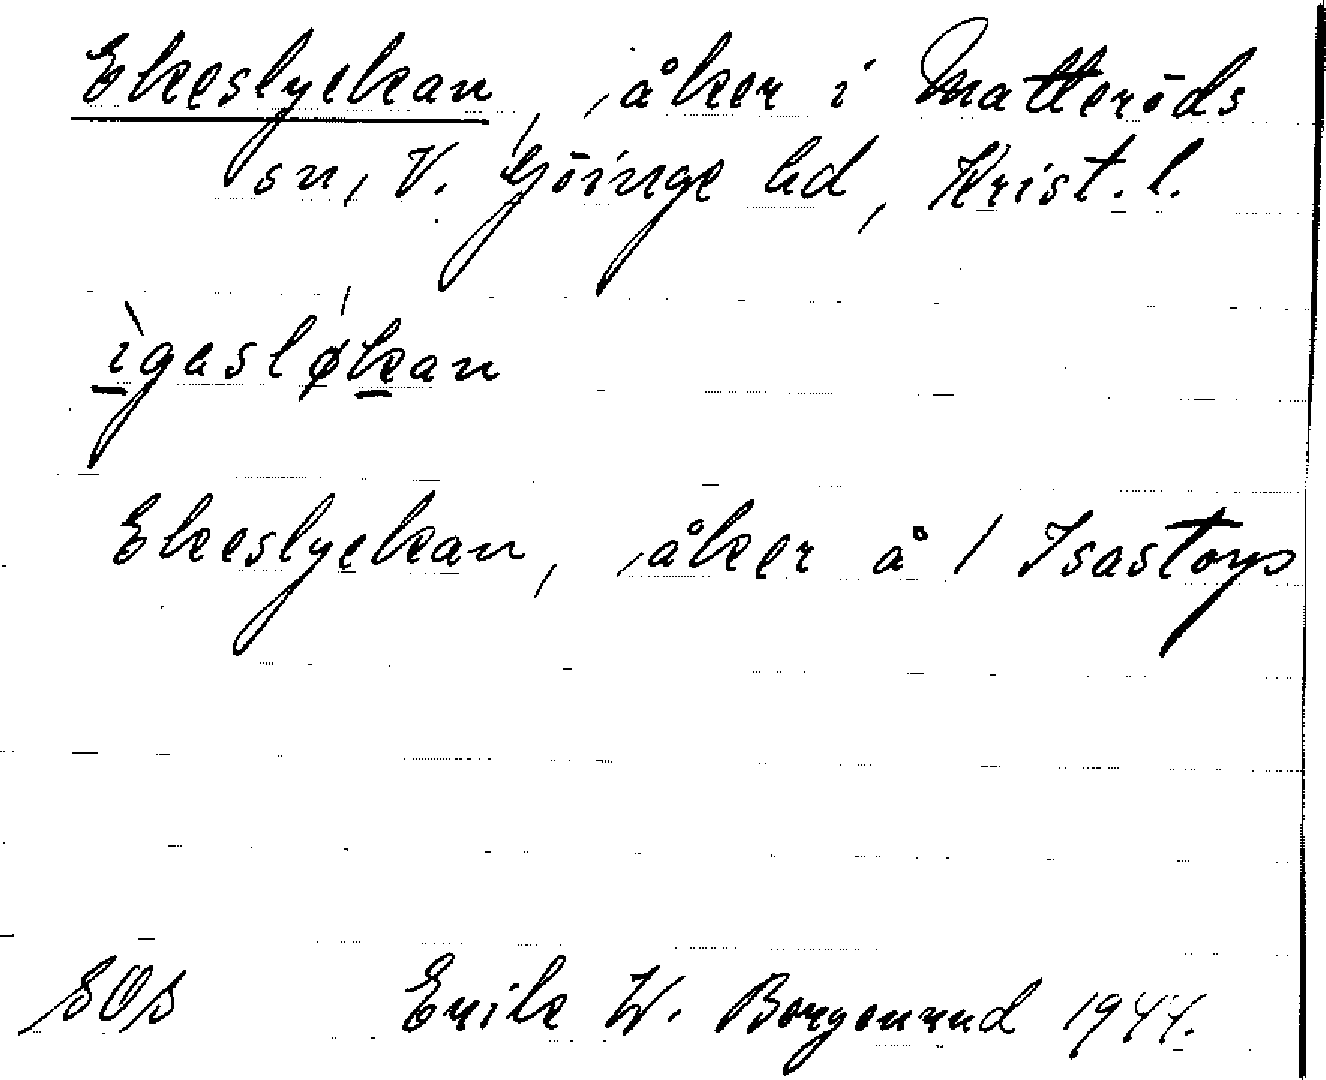 Ekeslyckan, åker i Matteröds
sn, V. Göinge hd, Krist. l.
ìgasløkan
Ekeslyckan, åker å 1 Isastorp
SOS Erik W. Borgenrud 1944.